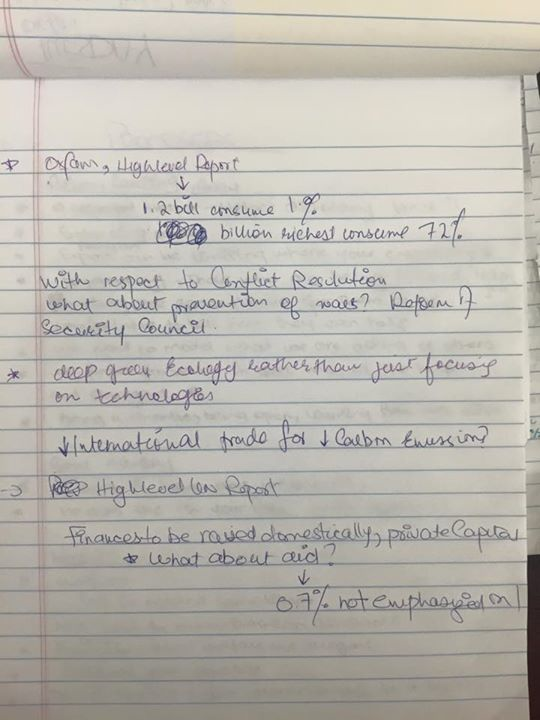 * Oxfam, Highlevel Report
↓
1.2 bill consume 1%
billion richest consume 72%
With respect to Conflict Resolution
what about prevention of wars? Reform of
Security Council.
* deep green Ecology rather than just focusing
on technologies
↓ International trade for ↓ Carbon Emission?
→ Highlevel UN Report
Finances to be raised domestically, private Capital
* What about aid?
↓
0.7% not emphasized on